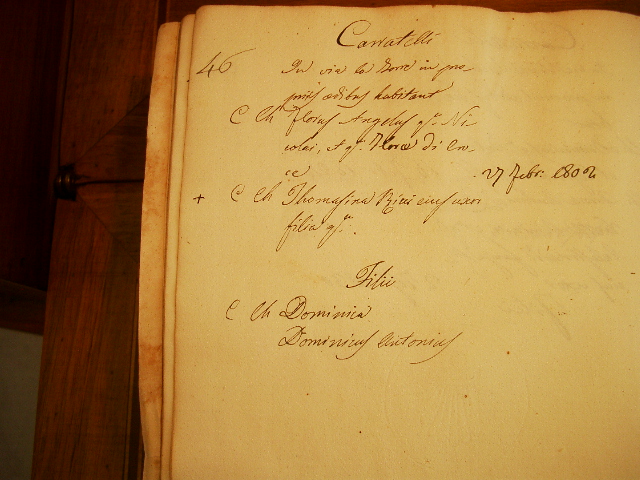 Carratelli
46 In via la Torre in pro
prijs ædibus habitant
C Ch Florus Angelus qm Ni
colai, et qm Floræ Di Cro
ce 27 Febr: 1802
+ C Ch Thomasina Ricci ejus uxor
filia qm.
Filii
C Ch Dominica
Dominicus Antonius